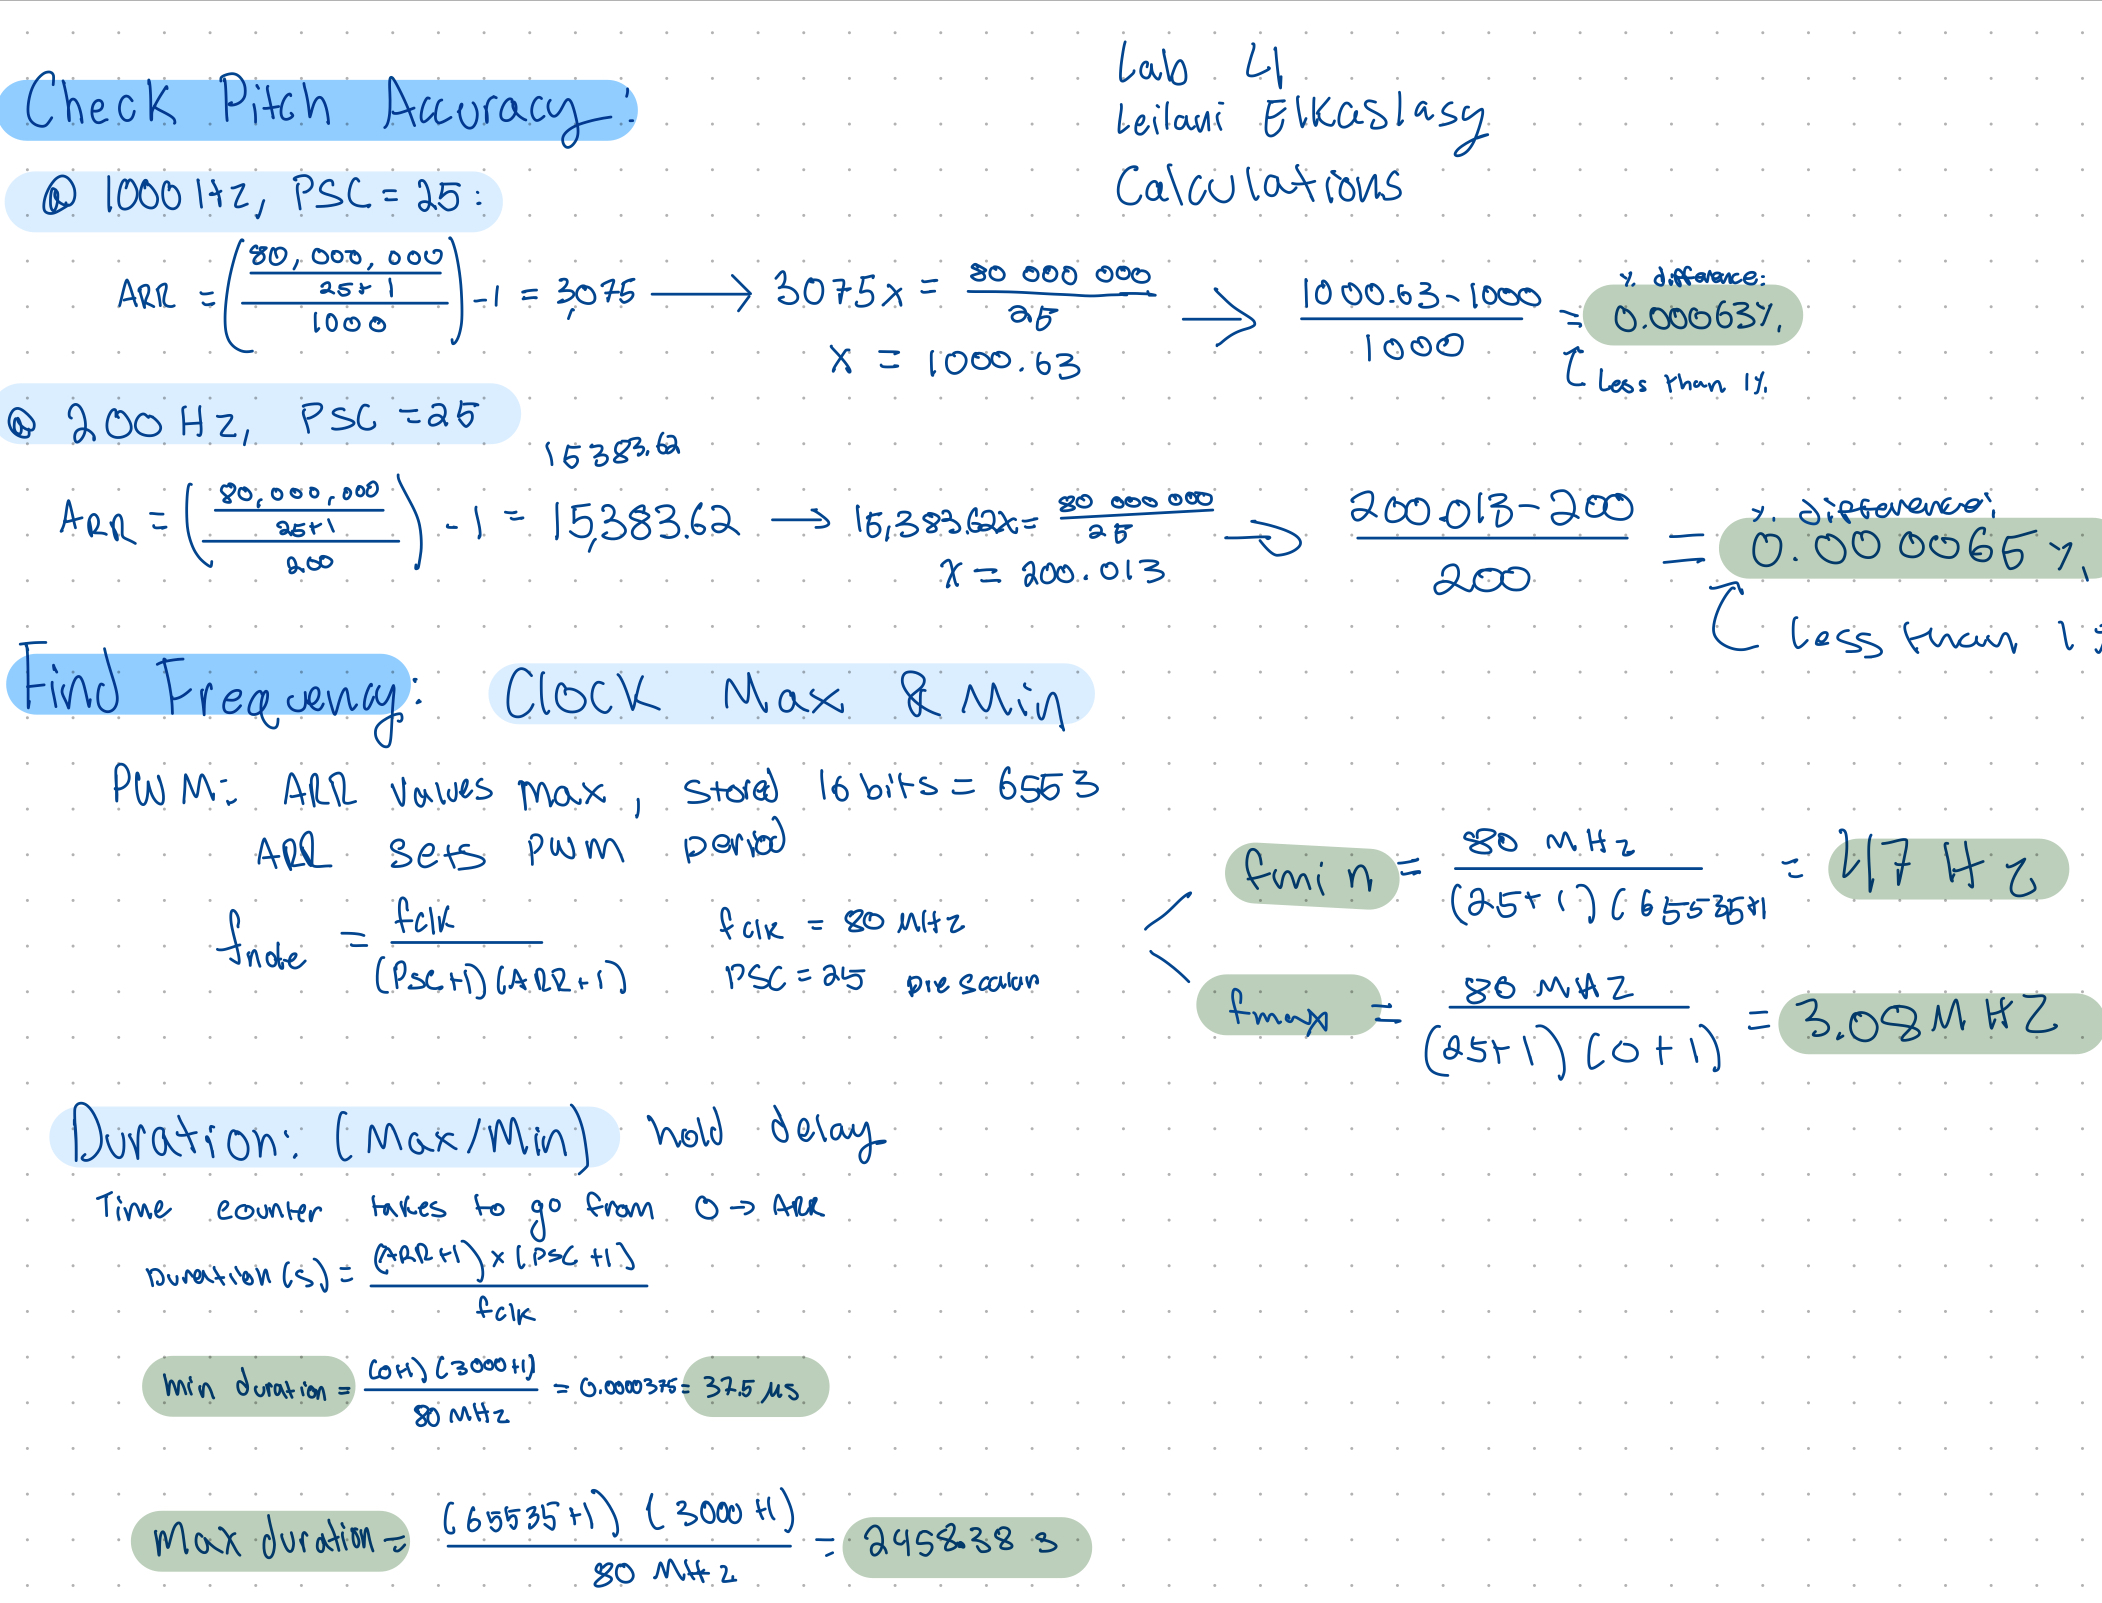 Lab 4
Leilani Elkaslasy
Calculations
Check Pitch Accuracy:
@ 1000 Hz, PSC = 25:
ARR = ((80,000,000 / 25+1) / 1000) - 1 = 3,075 → 3075x = 80 000 000 / 25 → (1000.63 - 1000) / 1000 = 0.00063%
x = 1000.63
% difference:
Less than 1%
@ 200 Hz, PSC = 25
15383.62
ARR = ((80,000,000 / 25+1) / 200) - 1 = 15,383.62 → 15,383.62x = 80 000 000 / 25 → (200.013 - 200) / 200 = 0.000065%
x = 200.013
% difference:
Less than 1%
Find Frequency: Clock Max & Min
PWM: ARR values max, stored 16 bits = 6553
ARR sets PWM period
fnote = fclk / (PSC+1)(ARR+1)
fclk = 80 MHz
PSC = 25 prescalar
fmin = 80 MHz / (25+1)(65535+1 = 47 Hz
fmax = 80 MHZ / (25+1)(0+1) = 3.08 MHZ
Duration: (Max/Min) hold delay
Time counter takes to go from 0 → ARR
Duration (s) = (ARR+1) x (PSC+1) / fclk
min duration = (0+1)(3000+1) / 80 MHz = 0.0000375 = 37.5 µs
Max duration = (65535+1)(3000+1) / 80 MHz = 2458.38 s